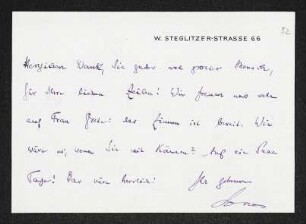 W. STEGLITZER-STRASSE 66
52
Herzlichen Dank, Sie guter und grosser Mensch,
für Ihre lieben Zeilen! Wir freuen uns sehr
auf Frau : das Zimmer ist bereit. Wie
wäre es, wenn Sie mit kämen? Auf ein Paar
Tage! Das wäre herrlich!
Ihr